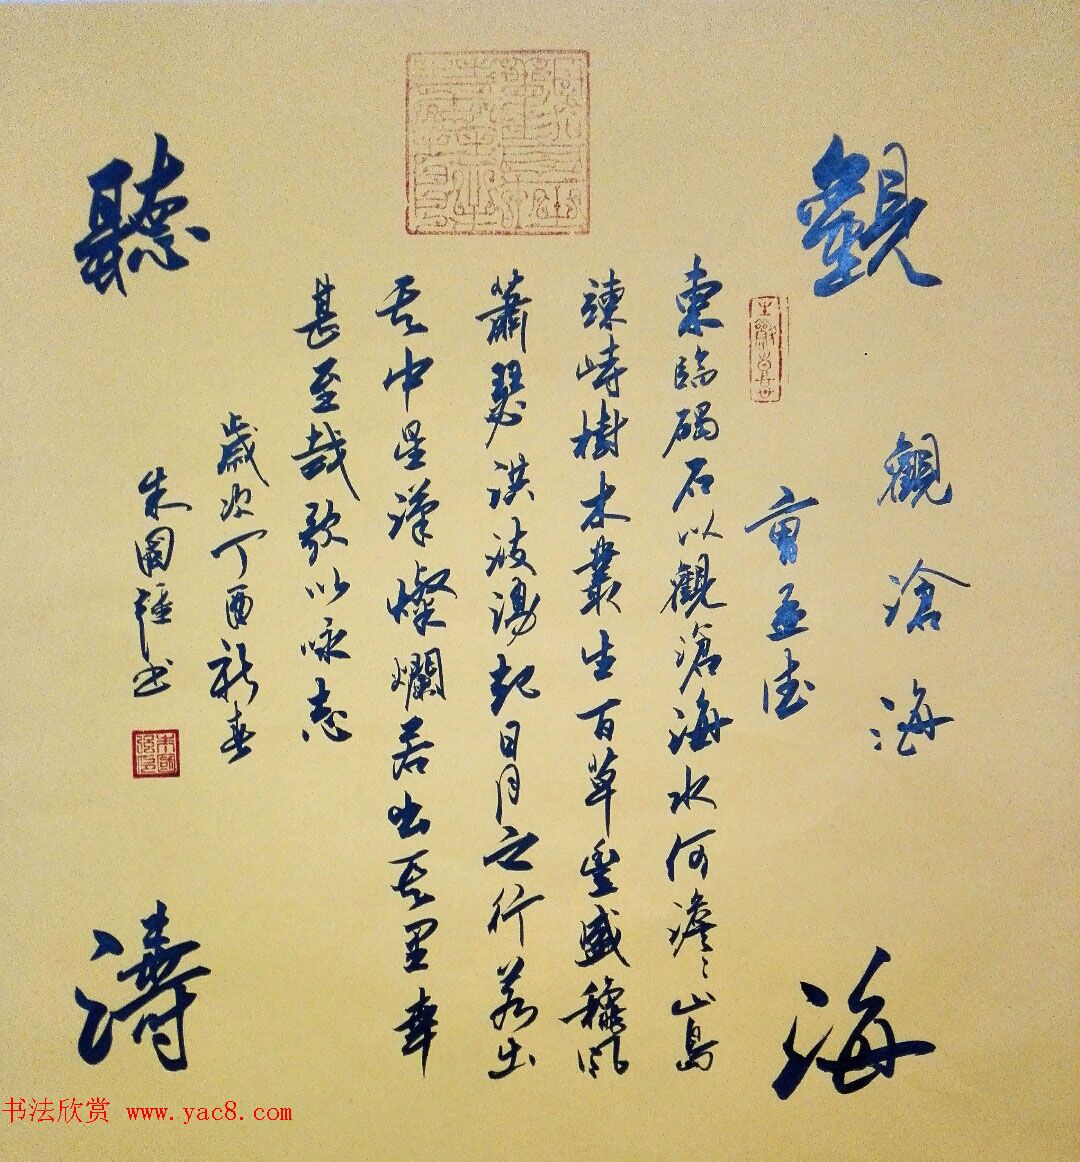 觀海
聽濤
觀滄海
曹孟德
東臨碣石以觀滄海水何澹〻山島
竦峙樹木叢生百草豐盛穐風
蕭瑟洪波湧起日月之行若出
其中星漢燦爛若出其里幸
甚至哉歌以咏志
歲次丁酉新春
朱國书
书法欣赏 www.yac8.com